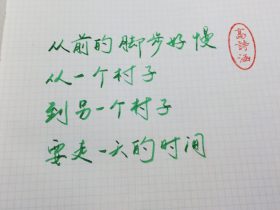 从前的脚步好慢
从一个村子
到另一个村子
要走一天的时间
高诗涵